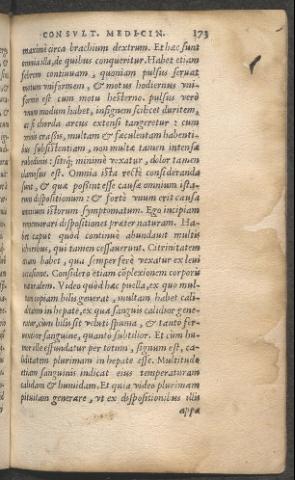 CONSVLT. MEDICIN. 173
maximè circa brachium dextrum. Et hæc sunt
omnia illa, de quibus conqueritur. Habet etiam
febrem continuam, quoniam pulsus seruat
motum vniformem, & motus hodiernus vni-
formis est cum motu hesterno. pulsus verò
vnum modum habet, insignem scilicet duritem,
ac si chorda arcus extensi tangeretur: cum
vrinis crassis, multam & fæculentam habenti-
bus subsistentiam, non multæ tamen intensæ
rubedinis: sitiq́; minimè vexatur, dolor tamen
clamosus est. Omnia ista rectè consideranda
sunt, & quæ possint esse causæ omnium ista-
rum dispositionum: & fortè vnum erit causa
omnium istorum symptomatum. Ego incipiam
enumerari dispositiones præter naturam. Ha-
bet caput quod continuè abundauit multis
doloribus, qui tamen cessauerunt. Citrinitatem
etiam habet, qua semper ferè vexatur ex leui
occasione. Considero etiam cōplexionem corporis
naturalem. Video quòd hæc puella, ex quo mul-
tam copiam bilis generat, multam habet cali-
ditatem in hepate, ex qua sanguis calidior gene-
ratur, cùm bilis sit veluti spuma, & tanto fer-
uentior sanguine, quantò subtilior. Et cùm hu-
mor ille effundatur per totum, signum est, ca-
liditatem plurimam in hepate esse. Multitudo
etiam sanguinis indicat eius temperaturam
calidam & humidam. Et quia video plurimam
pituitam generare, vt ex dispositionibus illis
appa